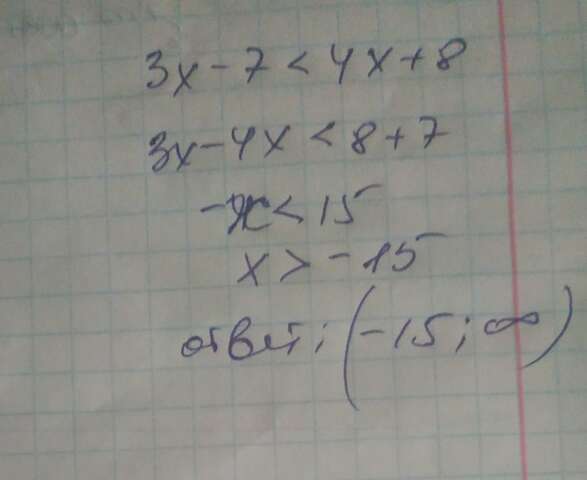 3x-7<4x+8
3x-4x<8+7
-x<15
x>-15
ответ: (-15; ∞)